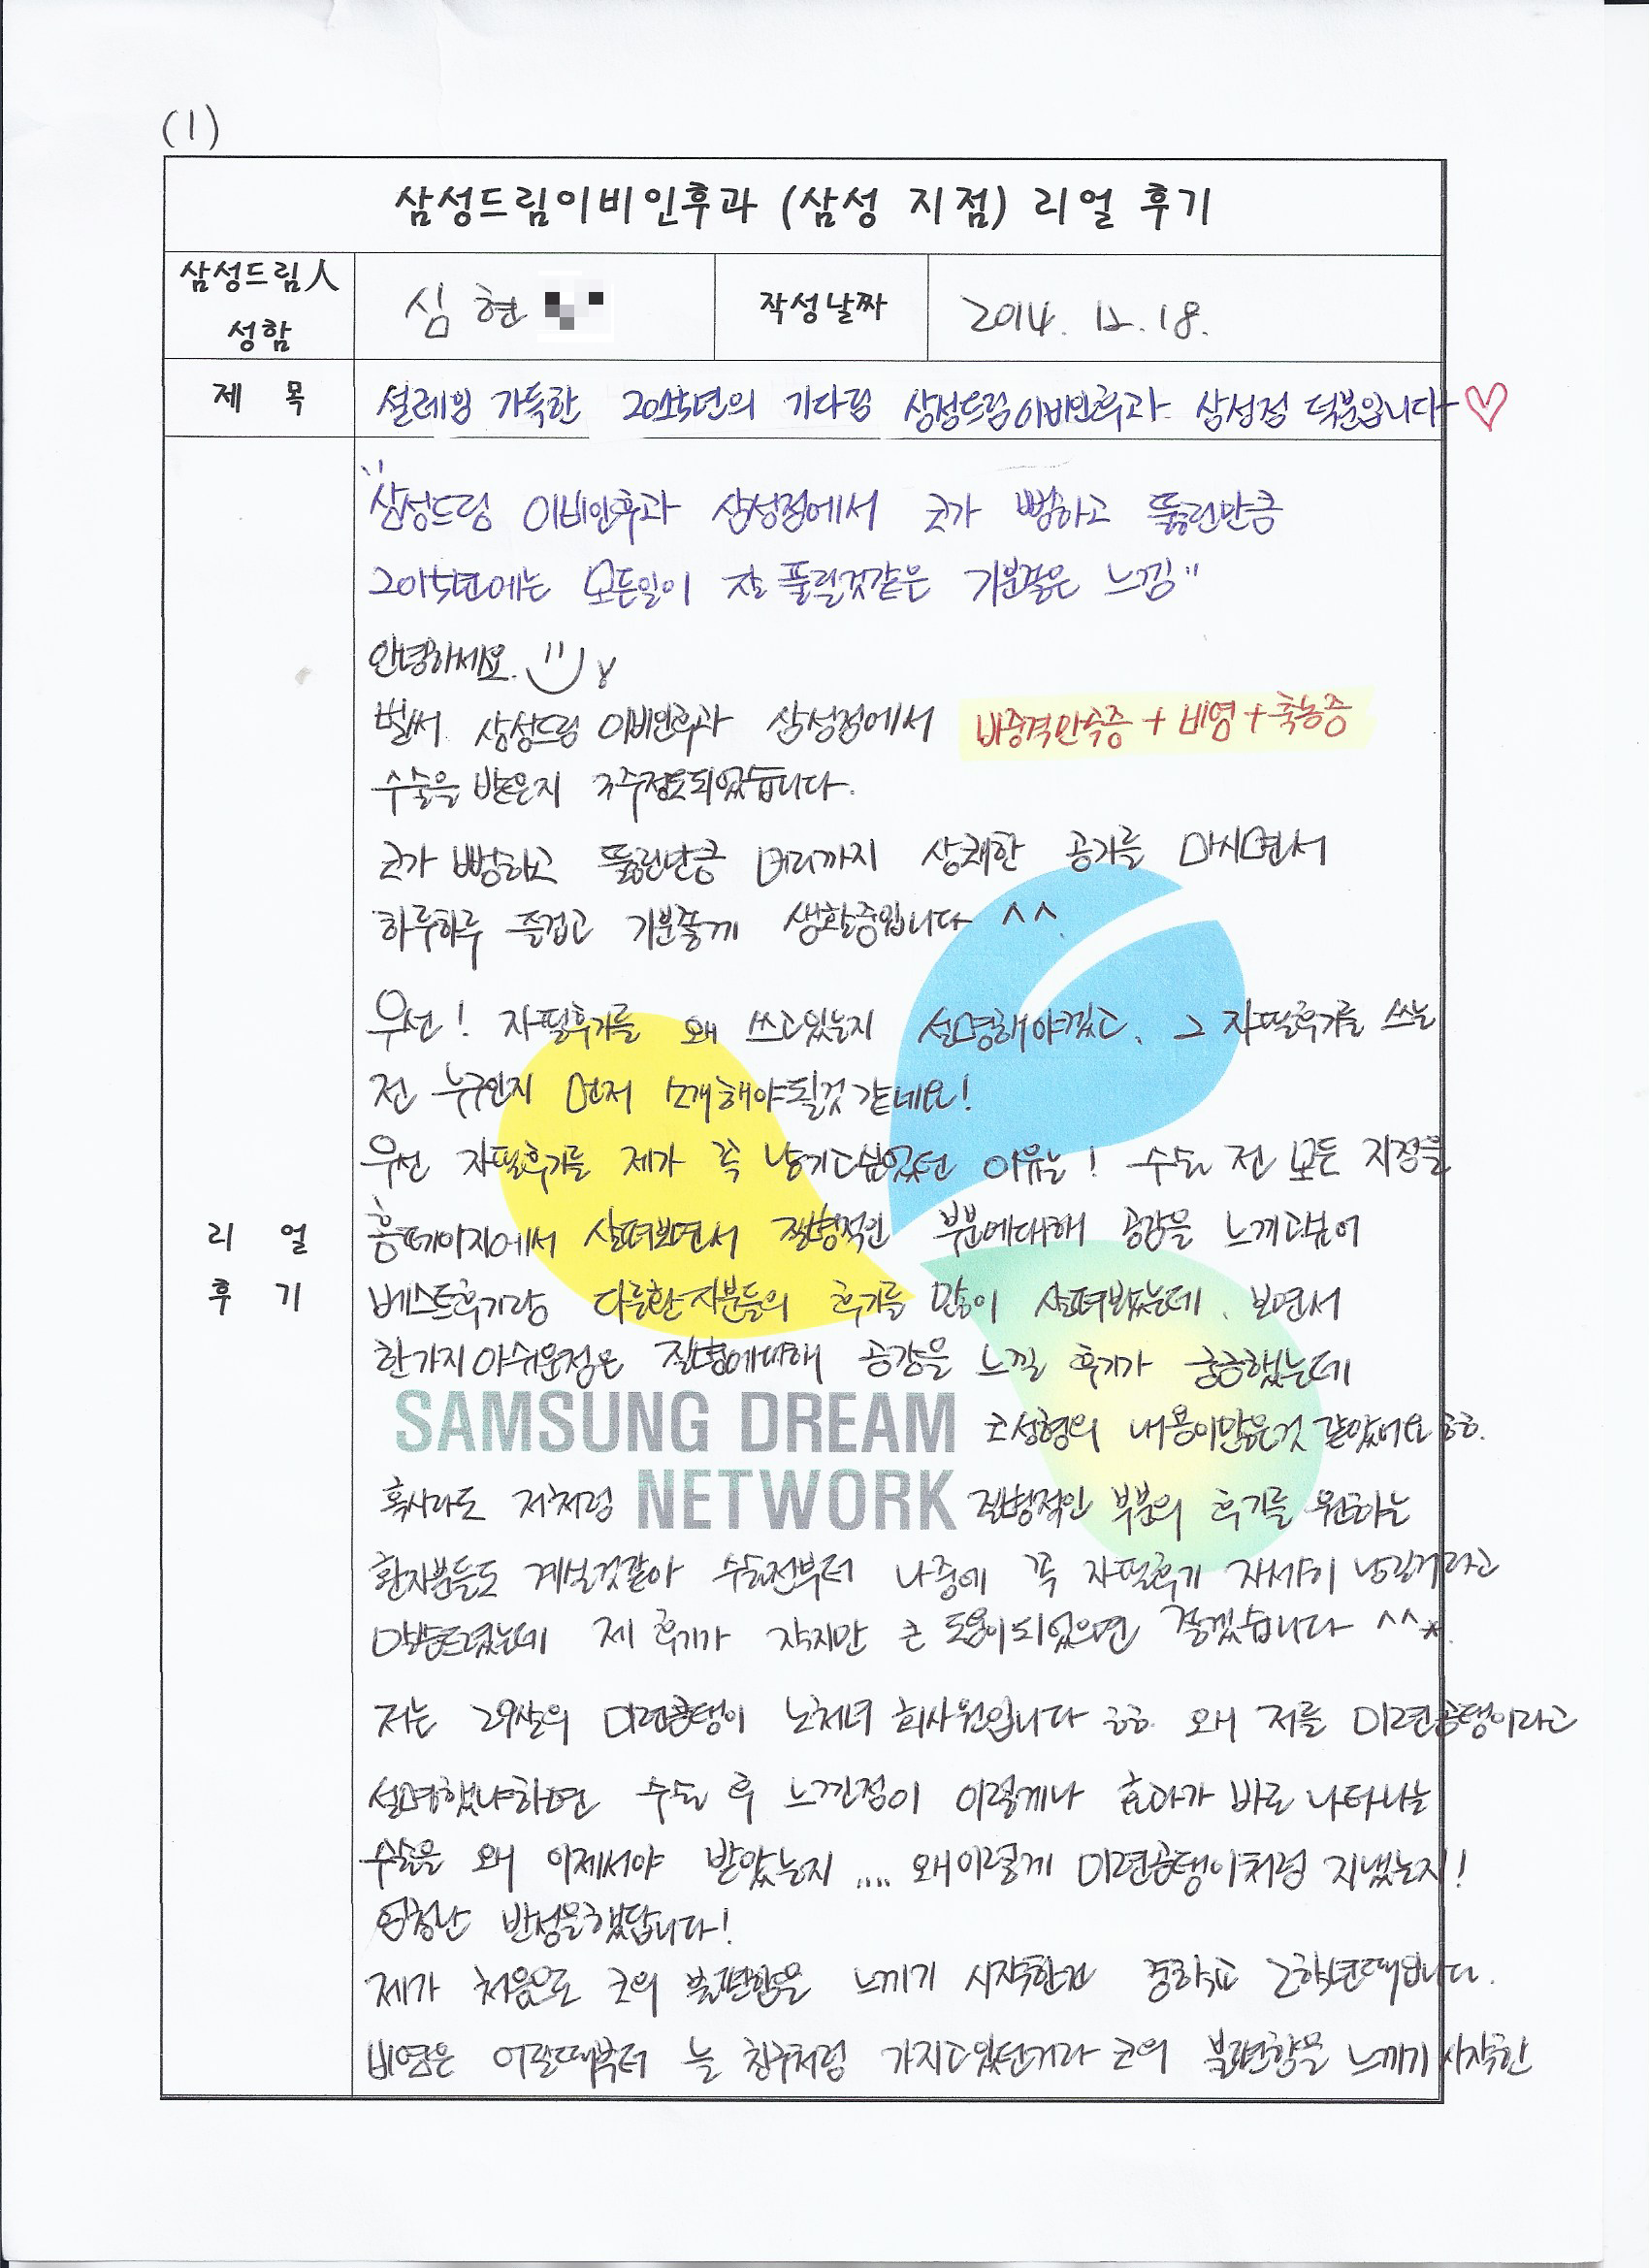 (1)
삼성드림이비인후과 (삼성 지점) 리얼 후기
삼성드림人
성함
심현
작성날짜
2014. 12. 18.
제 목
설레임 가득한 2015년의 기다림 삼성드림이비인후과 삼성점 덕분입니다♡
"삼성드림 이비인후과 삼성점에서 코가 뻥하고 뚫린만큼
2015년에는 모든일이 잘 풀릴것같은 기분좋은 느낌"
안녕하세요.
벌써 삼성드림 이비인후과 삼성점에서 비중격만곡증 + 비염 + 축농증
수술을 받은지 3주정도되었습니다.
코가 뻥하고 뚫린만큼 머리까지 상쾌한 공기를 마시면서
하루하루 즐겁고 기분좋게 생활중입니다 ^^
우선! 자필후기를 왜 쓰고있는지 설명해야겠고, 그 자필후기를 쓰는
전 누구인지 먼저 소개해야될것 같네요!
우선 자필후기를 제가 꼭 남기고싶었던 이유는! 수술 전 모든 지점을
홈페이지에서 살펴보면서 질병적인 부분에대해 공감을 느끼고싶어
베스트후기랑 다른환자분들의 후기를 많이 살펴봤는데, 보면서
한가지 아쉬운점은 질병에대해 공감을 느낄 후기가 궁금했는데
SAMSUNG DREAM
코성형의 내용이많은것 같았어요 ㅎㅎ.
혹시라도 저처럼
NETWORK
질병적인 부분의 후기를 원하는
환자분들도 계실것같아 수술전부터 나중에 꼭 자필후기 자세히 남길거라고
말씀드렸는데 제 후기가 작지만 큰 도움이되었으면 좋겠습니다 ^^*
저는 29살의 미련곰탱이 노처녀 회사원입니다 ㅎㅎ. 왜 저를 미련곰탱이라고
설명했냐하면 수술 후 느낀점이 이렇게나 효과가 바로 나타나는
수술을 왜 이제서야 받았는지 .... 왜이렇게 미련곰탱이처럼 지냈는지!
엄청난 반성을했답니다!
제가 처음으로 코의 불편함을 느끼기 시작한건 중학교 2학년때입니다.
비염은 어릴때부터 늘 친구처럼 가지고있던거라 코의 불편함을 느끼기 시작한
리 얼
후 기